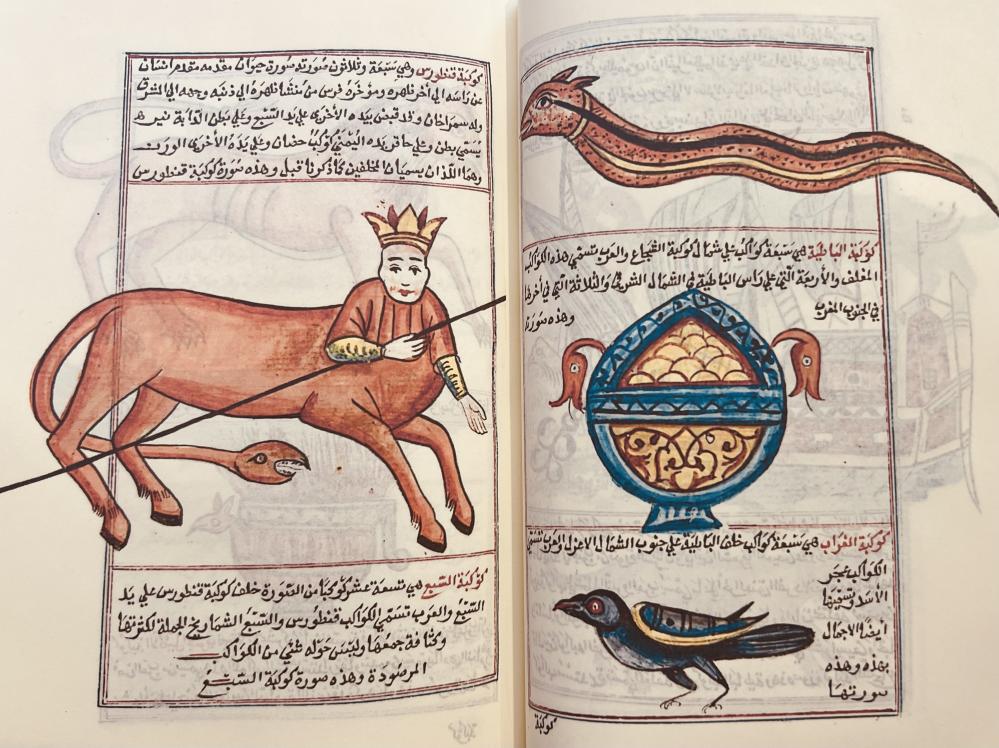 كوكبة قنطورس وهي سبعة وثلاثون صورته صورة حيوان مقدمه مقدم انسان
من راسه الى اخر ظهره ومؤخره فرس من منشا ظهره الى ذنبه وجهه الى المشرق
وله شمراخان وقد قبض بيده الأخرى على يد السبع وعلى بطن الدابة نير
يسمي بطن وعلى حافر يده اليمني كوكبا حضار وعلى يده الأخرى الوزن
وهما اللذان يسميان المحلفين كما ذكرنا قبل وهذه صورة كوكبة قنطورس
كوكبة السبع هي تسعة عشر كوكبا من الصورة خلف كوكبة قنطورس على يد
السبع والعرب تسمي الكواكب قنطورس والسبع الشماريخ الجملة لكثرتها
وكثافة جمعها وليس حوله شي من الكواكب
المرصودة وهذه صورة كوكبة السبع
كوكبة
كوكبة الباطية هي سبعة كواكب على شمال كوكبة الشجاع والعرب تسمي هذه الكواكب
المعلف والأربعة التي على راس الباطية في الشمال الشرقي والثلاثة التي في اخرها
في الجنوب المغرب
وهذه صورتها
كوكبة الغراب هي سبعة كواكب خلف الباطية على جنوب الشمال الاعزل والعرب تسمي
الكواكب عجز
الأسد وتسميها
أيضا الاجمال
بهذه وهذه
صورتها
كوكبة